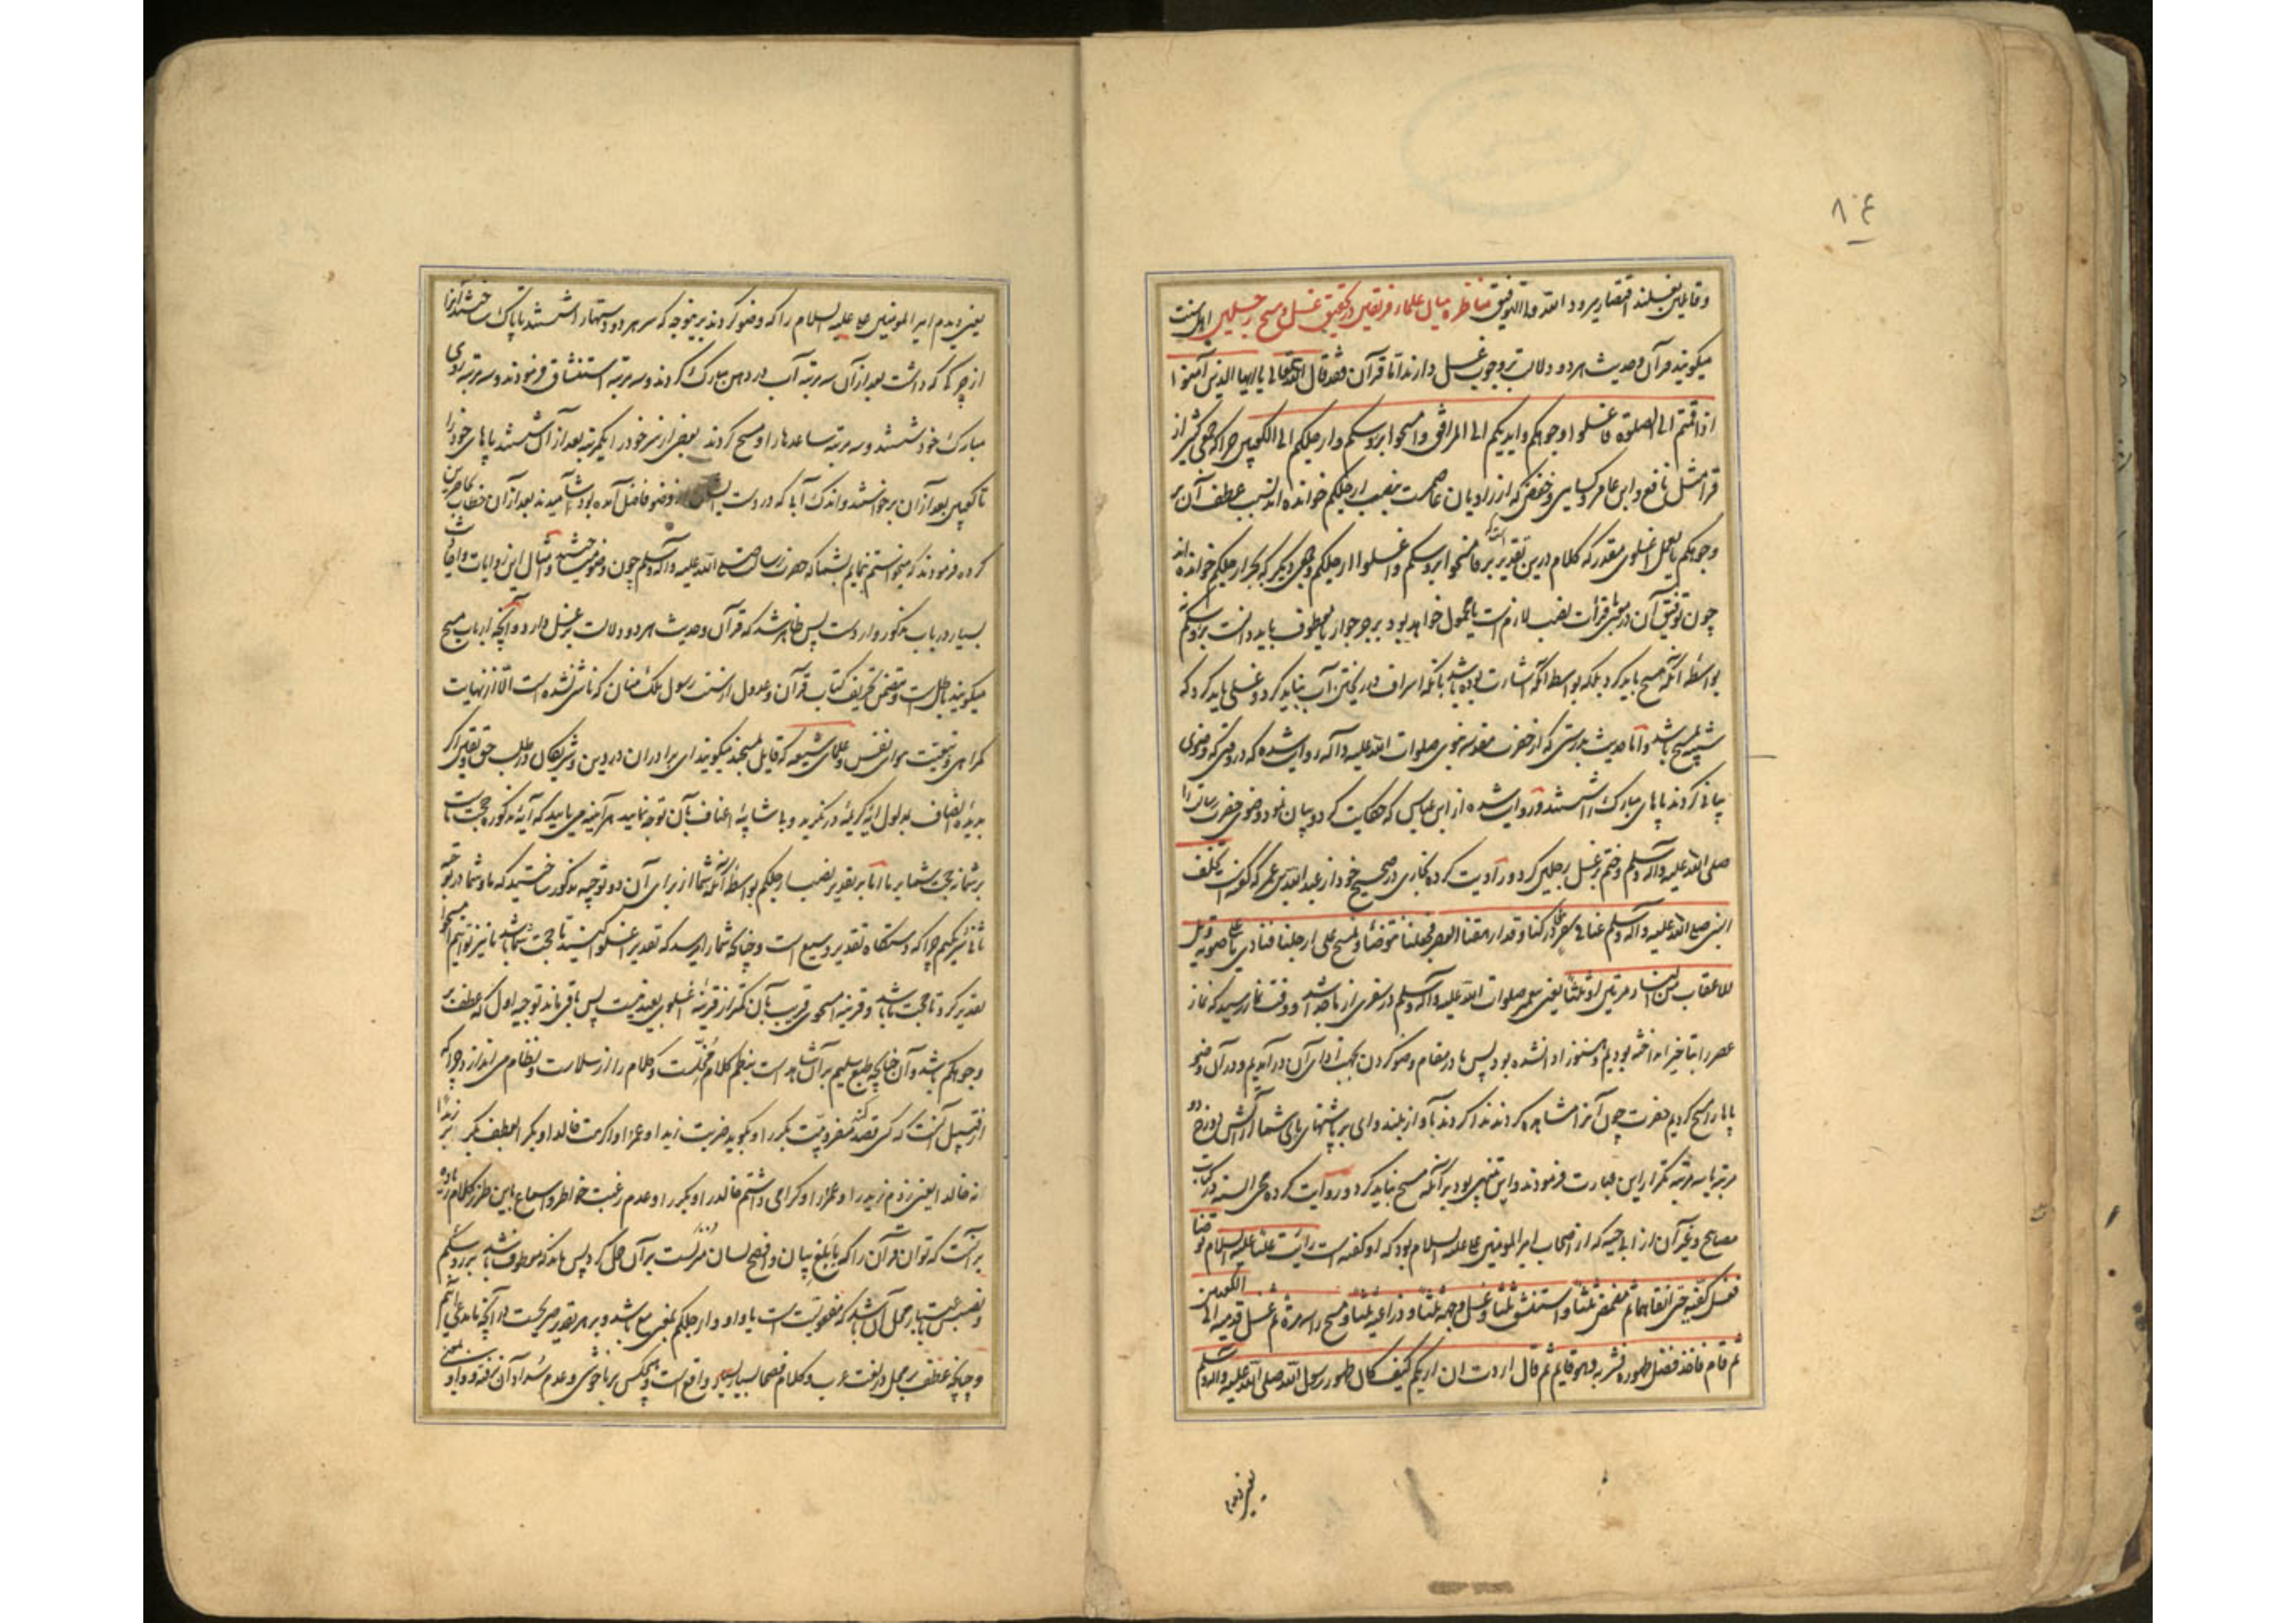 ۸۰۴
و قائلین بغسلند اقتصار میرود و الله ولی التوفیق مناظره میان علماء فریقین در تحقیق غسل و مسح رجلین اهل سنت
میگویند قرآن و حدیث هر دو دلالت بر وجوب غسل دارند اما قرآن فقد قال الله تعالی یا ایها الذین آمنوا
اذا قمتم الی الصلوة فاغسلوا وجوهکم و ایدیکم الی المرافق و امسحوا برؤسکم و ارجلکم الی الکعبین چراکه جمعی کثیر از
قرا مثل نافع و ابن عامر و کسایی و حفص که از راویان عاصمست بنصب ارجلکم خوانده اند بسبب عطف آن بر
وجوهکم یا بعمل اغسلوی مقدر که کلام درین تقدیر بر و امسحوا برؤسکم و اغسلوا ارجلکم و جمعی دیگر که بجر ارجلکم خوانده اند
چون توفیق آن در معنی بقرائت نصب لازم است یا محمول خواهد بود بر جر جوار یا معطوف باید دانست برؤسکم نه
بواسطهٔ آنکه مسح باید کرد بلکه بواسطه آنکه اشارت بوده باشد بآنکه اسراف در ریختن آب نباید کرد و غسلی باید کرد که
شبیه بمسح باشد و اما حدیث بدرستی که از حضرت مقدسه نبوی صلوات الله علیه و آله روایت شده که در وقتی که وضوی
بیانی کردند پاهای مبارک را شستند و روایت شده از ابن عباس که حکایت کرد و بیان نمود وضوی حضرت رسالت را
صلی الله علیه و آله و سلم و ختم بر غسل رجلین کرد و روایت کرده بخاری در صحیح خود از عبد الله بن عمر که گفت تخلف
النبی صلی الله علیه و آله و سلم عنا فی سفر فادرکنا و قد ارهقنا العصر فجعلنا نتوضأ و نمسح علی ارجلنا فنادی باعلی صوته ویل
للاعقاب من النار مرتین او ثلثا یعنی پیغمبر صلوات الله علیه و آله و سلم در سفری از ما جدا شد و وقت نماز رسید که نماز
عصر را بتاخیر انداخته بودیم و هنوز ادا نشده بود پس ما در مقام وضو کردن بجهت ادای آن در آمدیم و در آن وضو
پاها را مسح کردیم حضرت چون آنرا مشاهده کردند ندا کردند بآواز بلند وای بر پاشنهای پای شما از آتش دوزخ دو
مرتبه یا سه مرتبه تکرار این عبارت فرمودند و این تنبیهی بود بر آنکه مسح نباید کرد و روایت کرده محی السنه در کتاب
مصابیح و غیر آن از ابی حیه که از اصحاب امیر المؤمنین علی علیه السلام بود که او گفته است رایت علیا علیه السلام توضا
فغسل کفیه حتی انقاهما ثم تمضمض ثلثا و استنشق ثلثا و غسل وجهه ثلثا و ذراعیه ثلثا و مسح راسه مرة ثم غسل قدمیه الی الکعبین
ثم قام فاخذ فضل طهوره فشربه و هو قایم ثم قال اردت ان اریکم کیف کان طهور رسول الله صلی الله علیه و اله و سلم
یعنی دیدم
یعنی دیدم امیر المومنین علی علیه السلام را که وضو کردند برینوجه که سر هر دو دستها را شستند تا پاک ساختند آنرا
از چرکی که داشت بعد از آن سه مرتبه آب در دهن مبارک کردند و سه مرتبه استنشاق فرمودند و سه مرتبه روی
مبارک خود شستند و سه مرتبه ساعدها را و مسح کردند بعضی از سر خود را یکمرتبه بعد از آن شستند پاهای خود را
تا کعبین بعد از آن برخواستند و اندک آبی که در دست ایشان از وضو فاضل آمده بود آشامیدند بعد از آن خطاب بحاضرین
کرده فرمودند که میخواستم بنمایم بشما که حضرت رسالت صلی الله علیه و آله و سلم چون وضو میساختند و امثال این روایات و احادیث
بسیار در باب مذکور وارد است پس ظاهر شد که قرآن و حدیث هر دو دلالت بر غسل دارد و آنچه ارباب مسح
میگویند باطل است و متضمن تحریف کتاب قرآن و عدول از سنت رسول ملک منان که ناشی نشده است الا از نهایت
گمراهی و تبعیت هوای نفس و علمای شیعه که قایل بمسحند میگویند ای برادران در دین و شریکان در طلب حق و یقین اگر
بدیدهٔ انصاف بمدلول آیهٔ کریمه در نگرید و بی شایبهٔ اعتساف بآن توجه نمایید هر آینه می یابید که آیهٔ مذکوره حجت ماست
بر شما نه حجت شما بر ما اما بر تقدیر نصب ارجلکم بواسطهٔ آنکه شما از برای آن دو توجیه مذکور ساختید که ما و شما در توجیه
ثانی شریکیم چراکه دستگاه تقدیر وسیع است و چنانکه شما را میرسد که تقدیر اغسلوا کنید تا حجت شما باشد ما نیز توانیم امسحوا
تقدیر کرد تا حجت ما باشد و قرینه امسحوی قریب بآن کمتر از قرینهٔ اغسلوی بعید نیست پس باقی ماند توجیه اول که عطف بر
وجوهکم باشد و آن چنانچه طبع سلیم بر آن شاهد است بنظم کلام مخلست و کلام را از سلاست و نظام می اندازد چراکه
از قبیل آنست که کسی قصد کند مضروبیت بکر را و بگوید ضربت زیدا و عمرا و اکرمت خالدا و بکرا بعطف بکر بر زیدا
نه خالدا یعنی زدم زید را و عمرو را و گرامی داشتم خالد را و بکر را و عدم رغبت خواطر و اسماع باین طرز کلام زیاده
بر آنست که توان قرآن را که بابلغ بیان و افصح لسان منزلست بر آن حمل کرد پس ماند که معطوف باشد بر رؤسکم
و نصبش باعتبار محل آن باشد که مفعولیت است یا واو و ارجلکم بمعنی مع باشد و بر هر تقدیر صریحست در آنچه ما مدعی آنیم
و چنانچه عطف بر محل در لغت عرب و کلام فصحا بسیار بسیار واقع است و هیچکس بر ناخوشی و عدم سداد آن نرفته و واو بمعنی